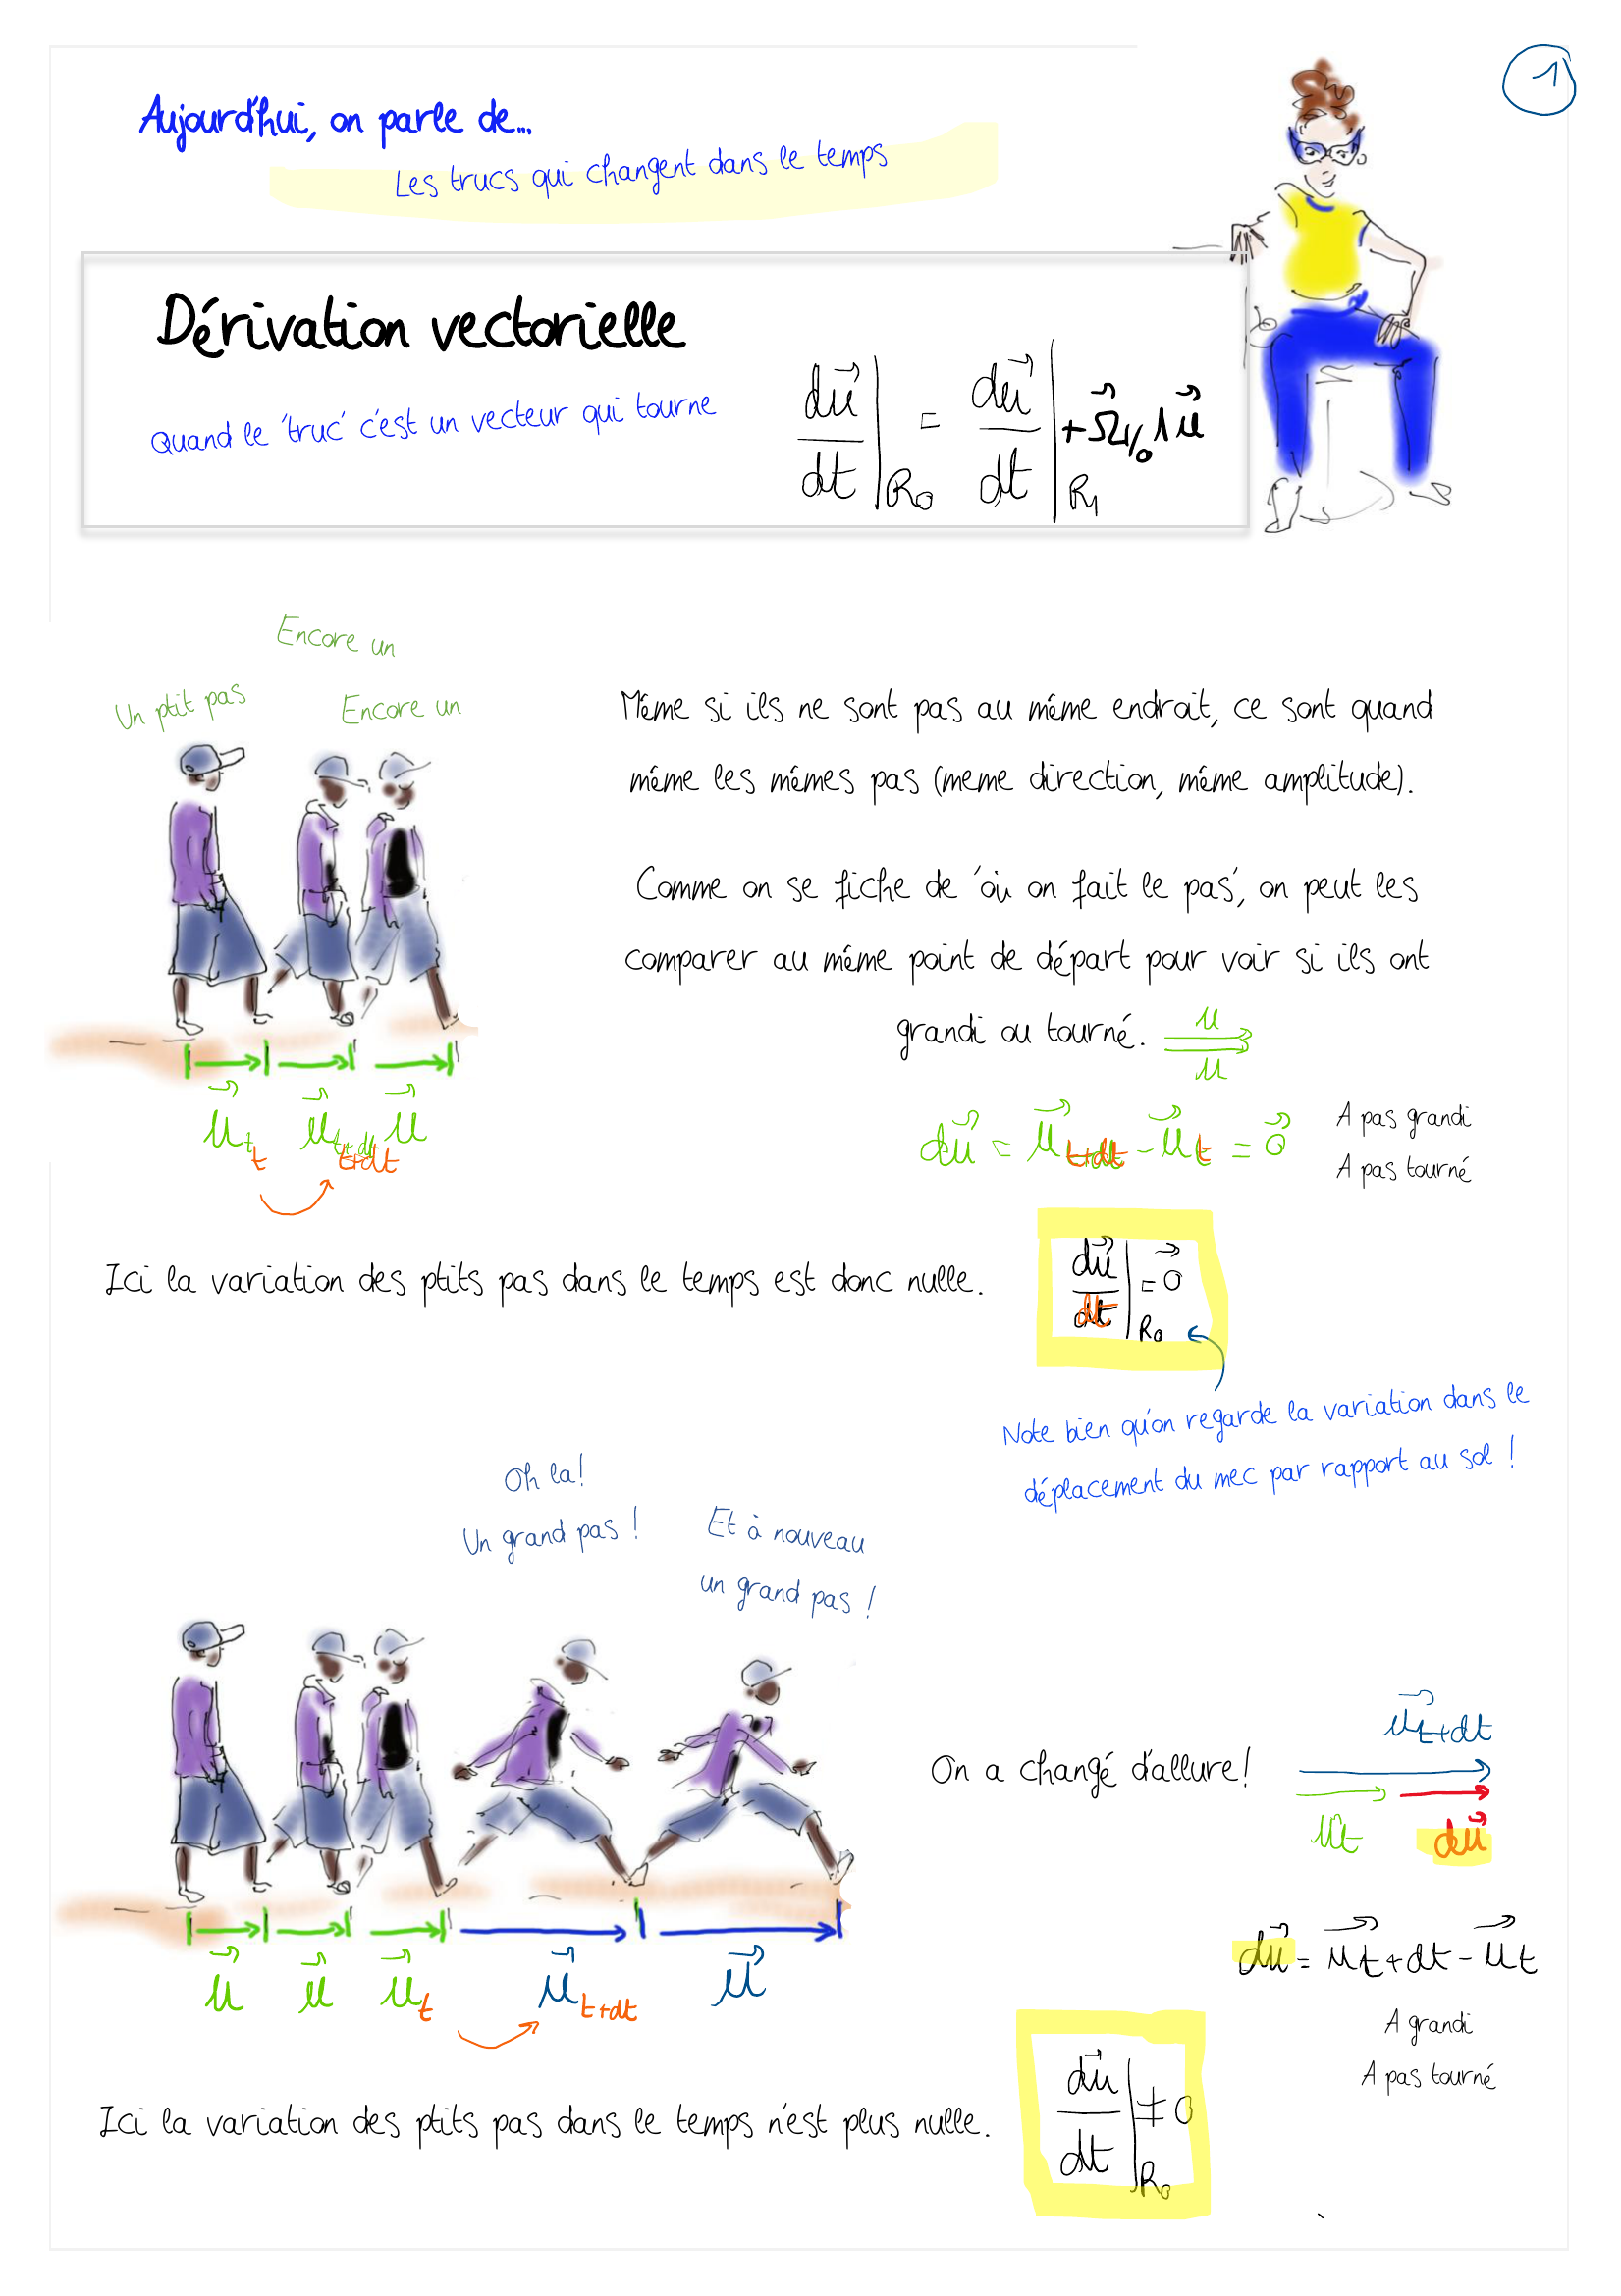 1
Aujourd'hui, on parle de...
Les trucs qui changent dans le temps
Dérivation vectorielle
Quand le 'truc' c'est un vecteur qui tourne
du⃗/dt|R₀ = du⃗/dt|R₁ + Ω⃗₁/₀ ∧ u⃗
Encore un
Un ptit pas
Encore un
Même si ils ne sont pas au même endroit, ce sont quand
même les mêmes pas (meme direction, même amplitude).
Comme on se fiche de 'où on fait le pas', on peut les
comparer au même point de départ pour voir si ils ont
grandi ou tourné.
u
u
u⃗t u⃗t+dt u⃗
t t+dt
du⃗ = u⃗t+dt - u⃗t = 0⃗
A pas grandi
A pas tourné
Ici la variation des ptits pas dans le temps est donc nulle.
du⃗/dt|R₀ = 0⃗
Note bien qu'on regarde la variation dans le
déplacement du mec par rapport au sol !
Oh la!
Un grand pas !
Et à nouveau
un grand pas !
On a changé d'allure!
u⃗t+dt
ut
du⃗
u⃗ u⃗ u⃗t u⃗t+dt u⃗
du⃗ = u⃗t+dt - u⃗t
A grandi
A pas tourné
Ici la variation des ptits pas dans le temps n'est plus nulle.
du⃗/dt|R₀ ≠ 0